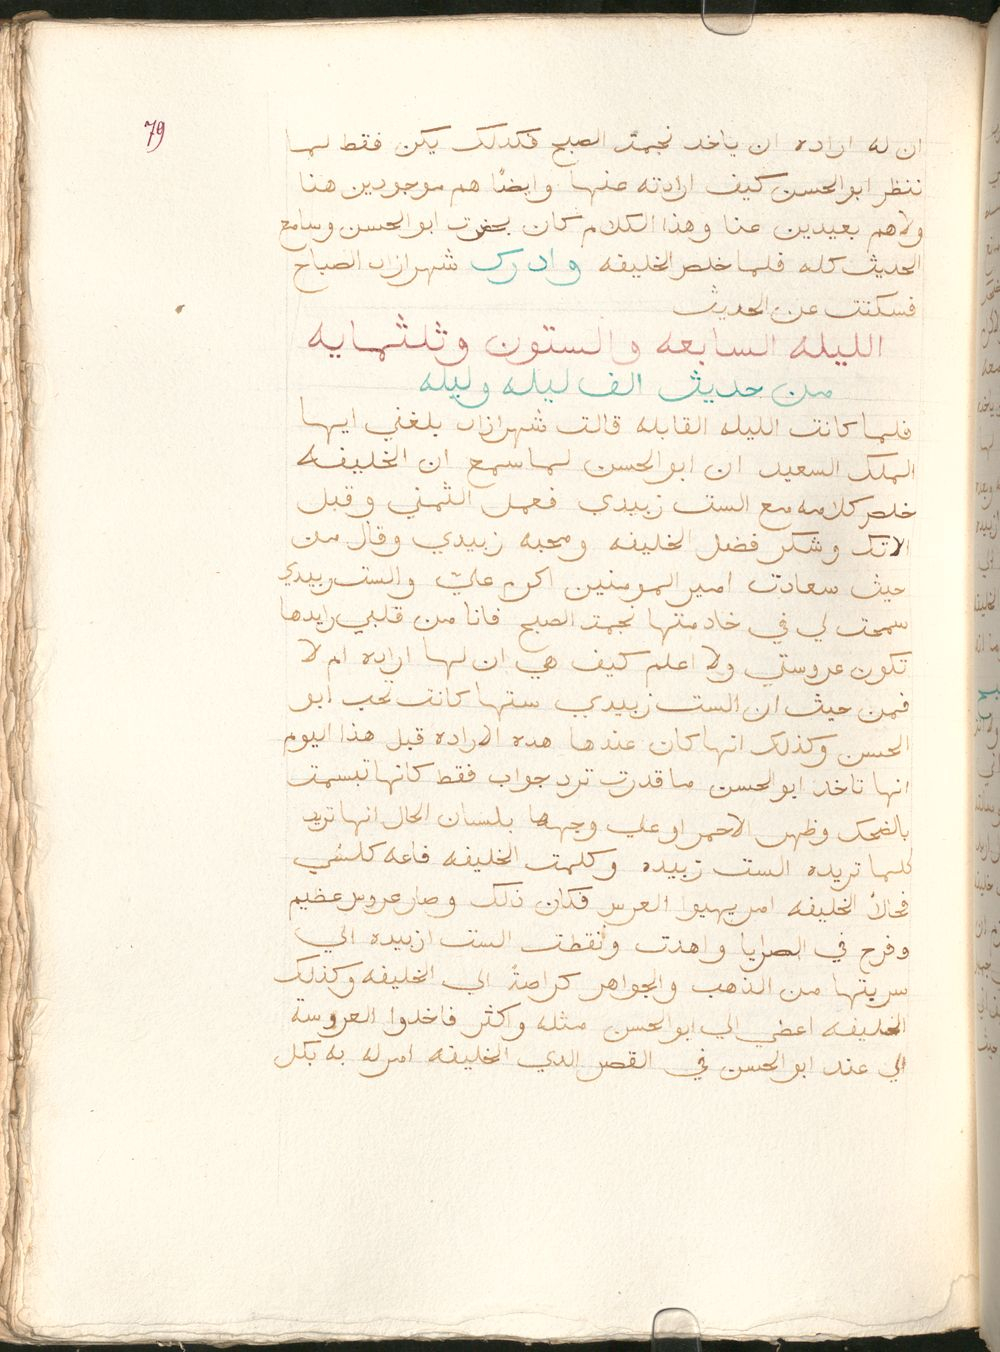 79
ان له اراده ان ياخد نجمت الصبح فكدلك يكن فقط لما
ننظر ابو الحسن كيف ارادته عنها وايضًا هم موجودين هنا
ولاهم بعيدين عنا وهذا الكلام كان بحضرت ابو الحسن وسامع
الحديث كله فلما خلص الخليفه وادرك شهرازاد الصباح
فسكتت عن الحديث
الليله السابعه والستون وثلثمايه
من حديث الف ليله وليله
فلما كانت الليله القابله قالت شهرازاد بلغني ايها
الملك السعيد ان ابو الحسن لما سمع ان الخليفه
خلص كلامه مع الست زبيدي فعمل التمني وقبل
الاتك وشكر فضل الخليفه ومحبه زبيدي وقال من
حيث سعادت امير المومنين اكرم عليّ والست زبيدي
سمحت لي في خادمتها نجمت الصبح فانا من قلبي رايدها
تكون عروستي ولا اعلم كيف هي ان لها اراده ام لا
فمن حيث ان الست زبيدي ستها كانت تحب ابو
الحسن وكذلك انها كان عندها هده الاراده قبل هذا اليوم
انها تاخد ابو الحسن ما قدرت ترد جواب فقط كانها تبسمت
بالضحك وظهر الاحمراو علي وجهها بلسان الحال انها تريد
كلما تريده الست زبيده وكلمت الخليفه فاعه كلشي
فحالاً الخليفه امر يهيوا العرس فكان ذلك وصار عروس عظيم
وفرح في الصرايا واهدت وانقطت الست ازبيده الي
سريتها من الذهب والجواهر كرامةً الي الخليفه وكذلك
الخليفه اعطي الي ابو الحسن مثله واكثر فاخدوا العروسة
الي عند ابو الحسن في القصر الدي الخليفه امر له به بكل